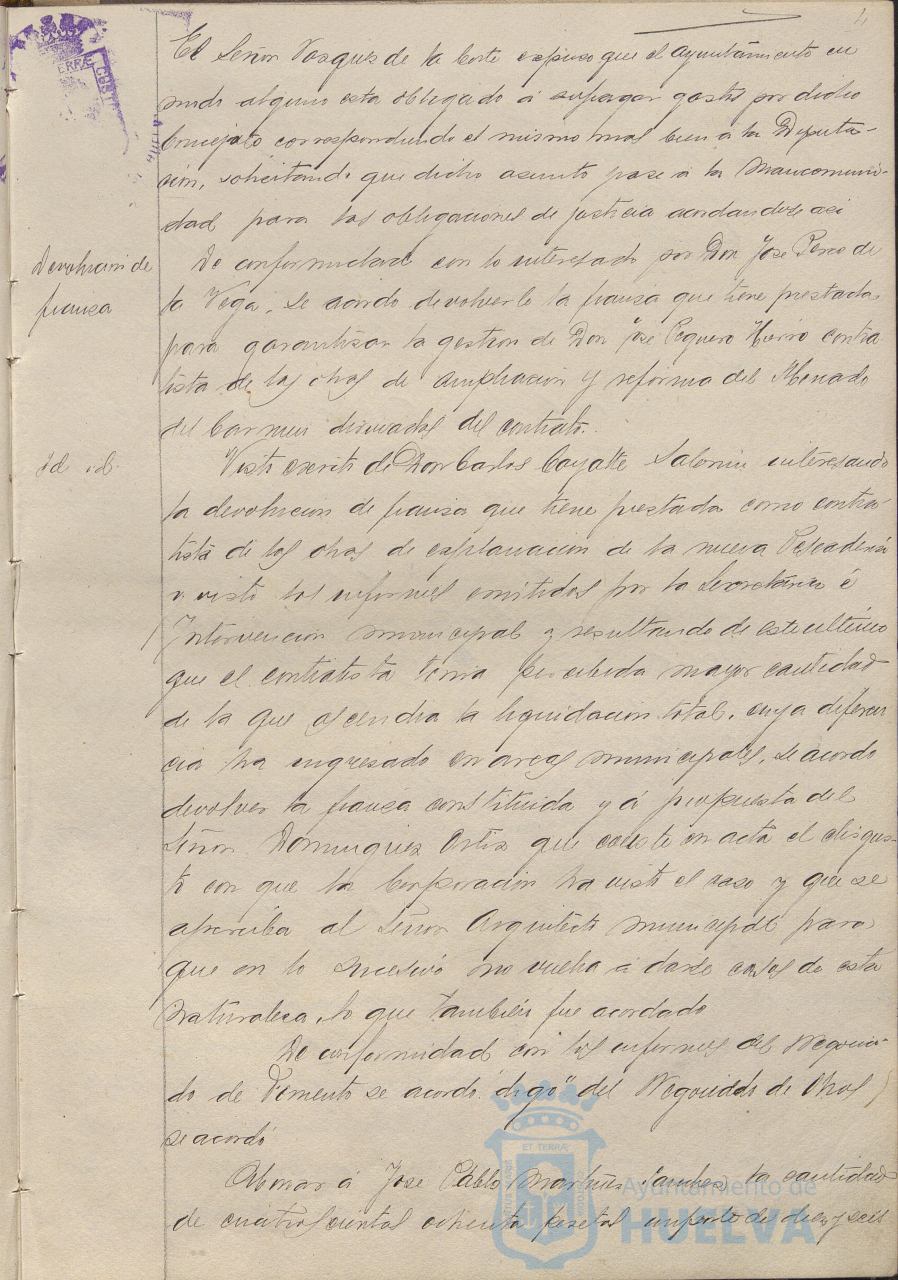 4
El Señor Vazquez de la Corte expuso que el ayuntamiento en
modo alguno esta obligado á sufragar gastos por dicho
concepto correspondiendo el mismo mas bien á la Diputa-
ción, solicitando que dicho asunto pase á la Mancomuni-
dad para las obligaciones de justicia acordandose asi
Devolucion de
fianza
De conformidad con lo interesado por Don Jose Perez de
la Vega, se acordo devolverle la fianza que tiene prestada
para garantizar la gestion de Don José Peguero Hierro contra-
tista de las obras de ampliacion y reforma del Mercado
del Carmen dimanadas del contrato.
id id.
Visto escrito de Don Carlos Cayatte interesando
la devolucion de fianza que tiene prestada como contra-
tista de las obras de explanacion de la nueva Pescaderia
y visto los informes emitidos por la Secretaria é
Intervencion municipal y resultando de este ultimo
que el contratista tenia percibida mayor cantidad
de la que ascendia la liquidacion total, cuya diferen-
cia ha ingresado en arcas municipales, se acordo
devolver la fianza constituida y á propuesta del
Señor Dominguez Ortiz que conste en acta el disgus-
to con que la Corporación ha visto el caso y que se
aperciba al Señor Arquitecto municipal para
que en lo sucesivo no vuelva á darse casos de esta
naturaleza, lo que tambien fue acordado
De conformidad con los informes del Negocia-
do de Fomento se acordo "digo" del Negociado de Obras
se acordó
Abonar á Jose Pablo Martinez la cantidad
de cuatrocientas ochenta pesetas importe de diez y seis
ET TERRÆ
Ayuntamiento de
HUELVA